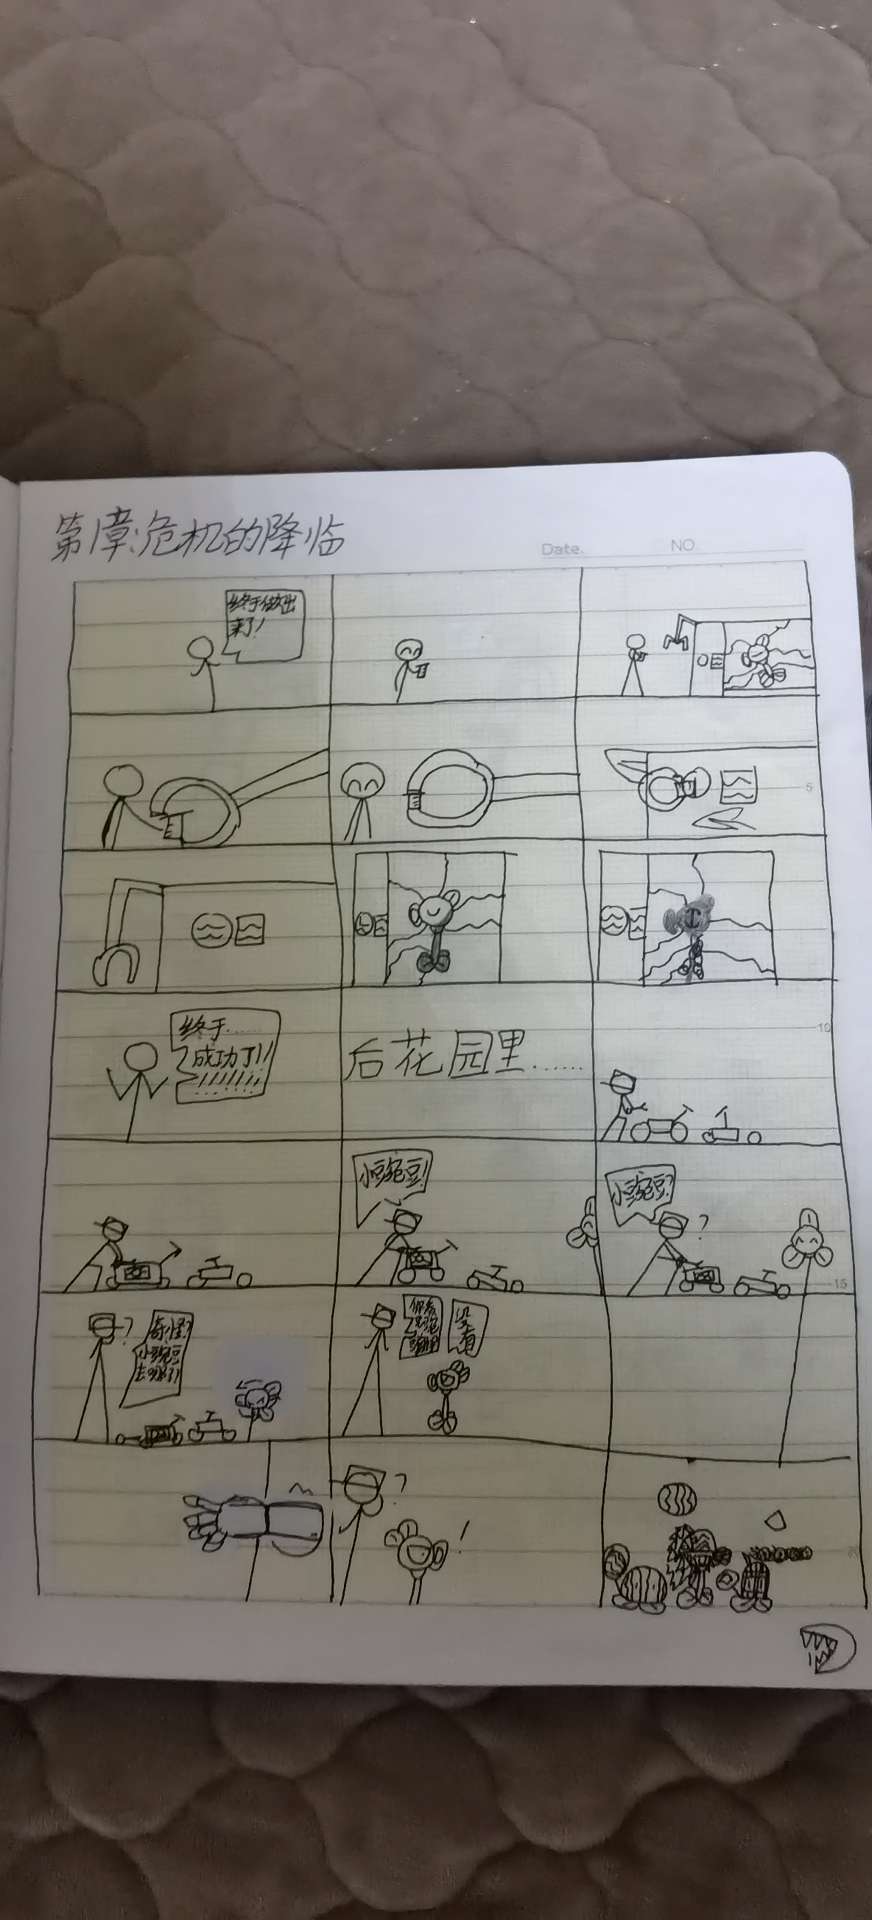 第1章:危机的降临
Date.
NO
终于做出
来了!
5
终于……
成功了!!
!!!!!!!
后花园里……
10
小豌豆!
小豌豆?
15
奇怪?
小豌豆
去哪了?
没
看